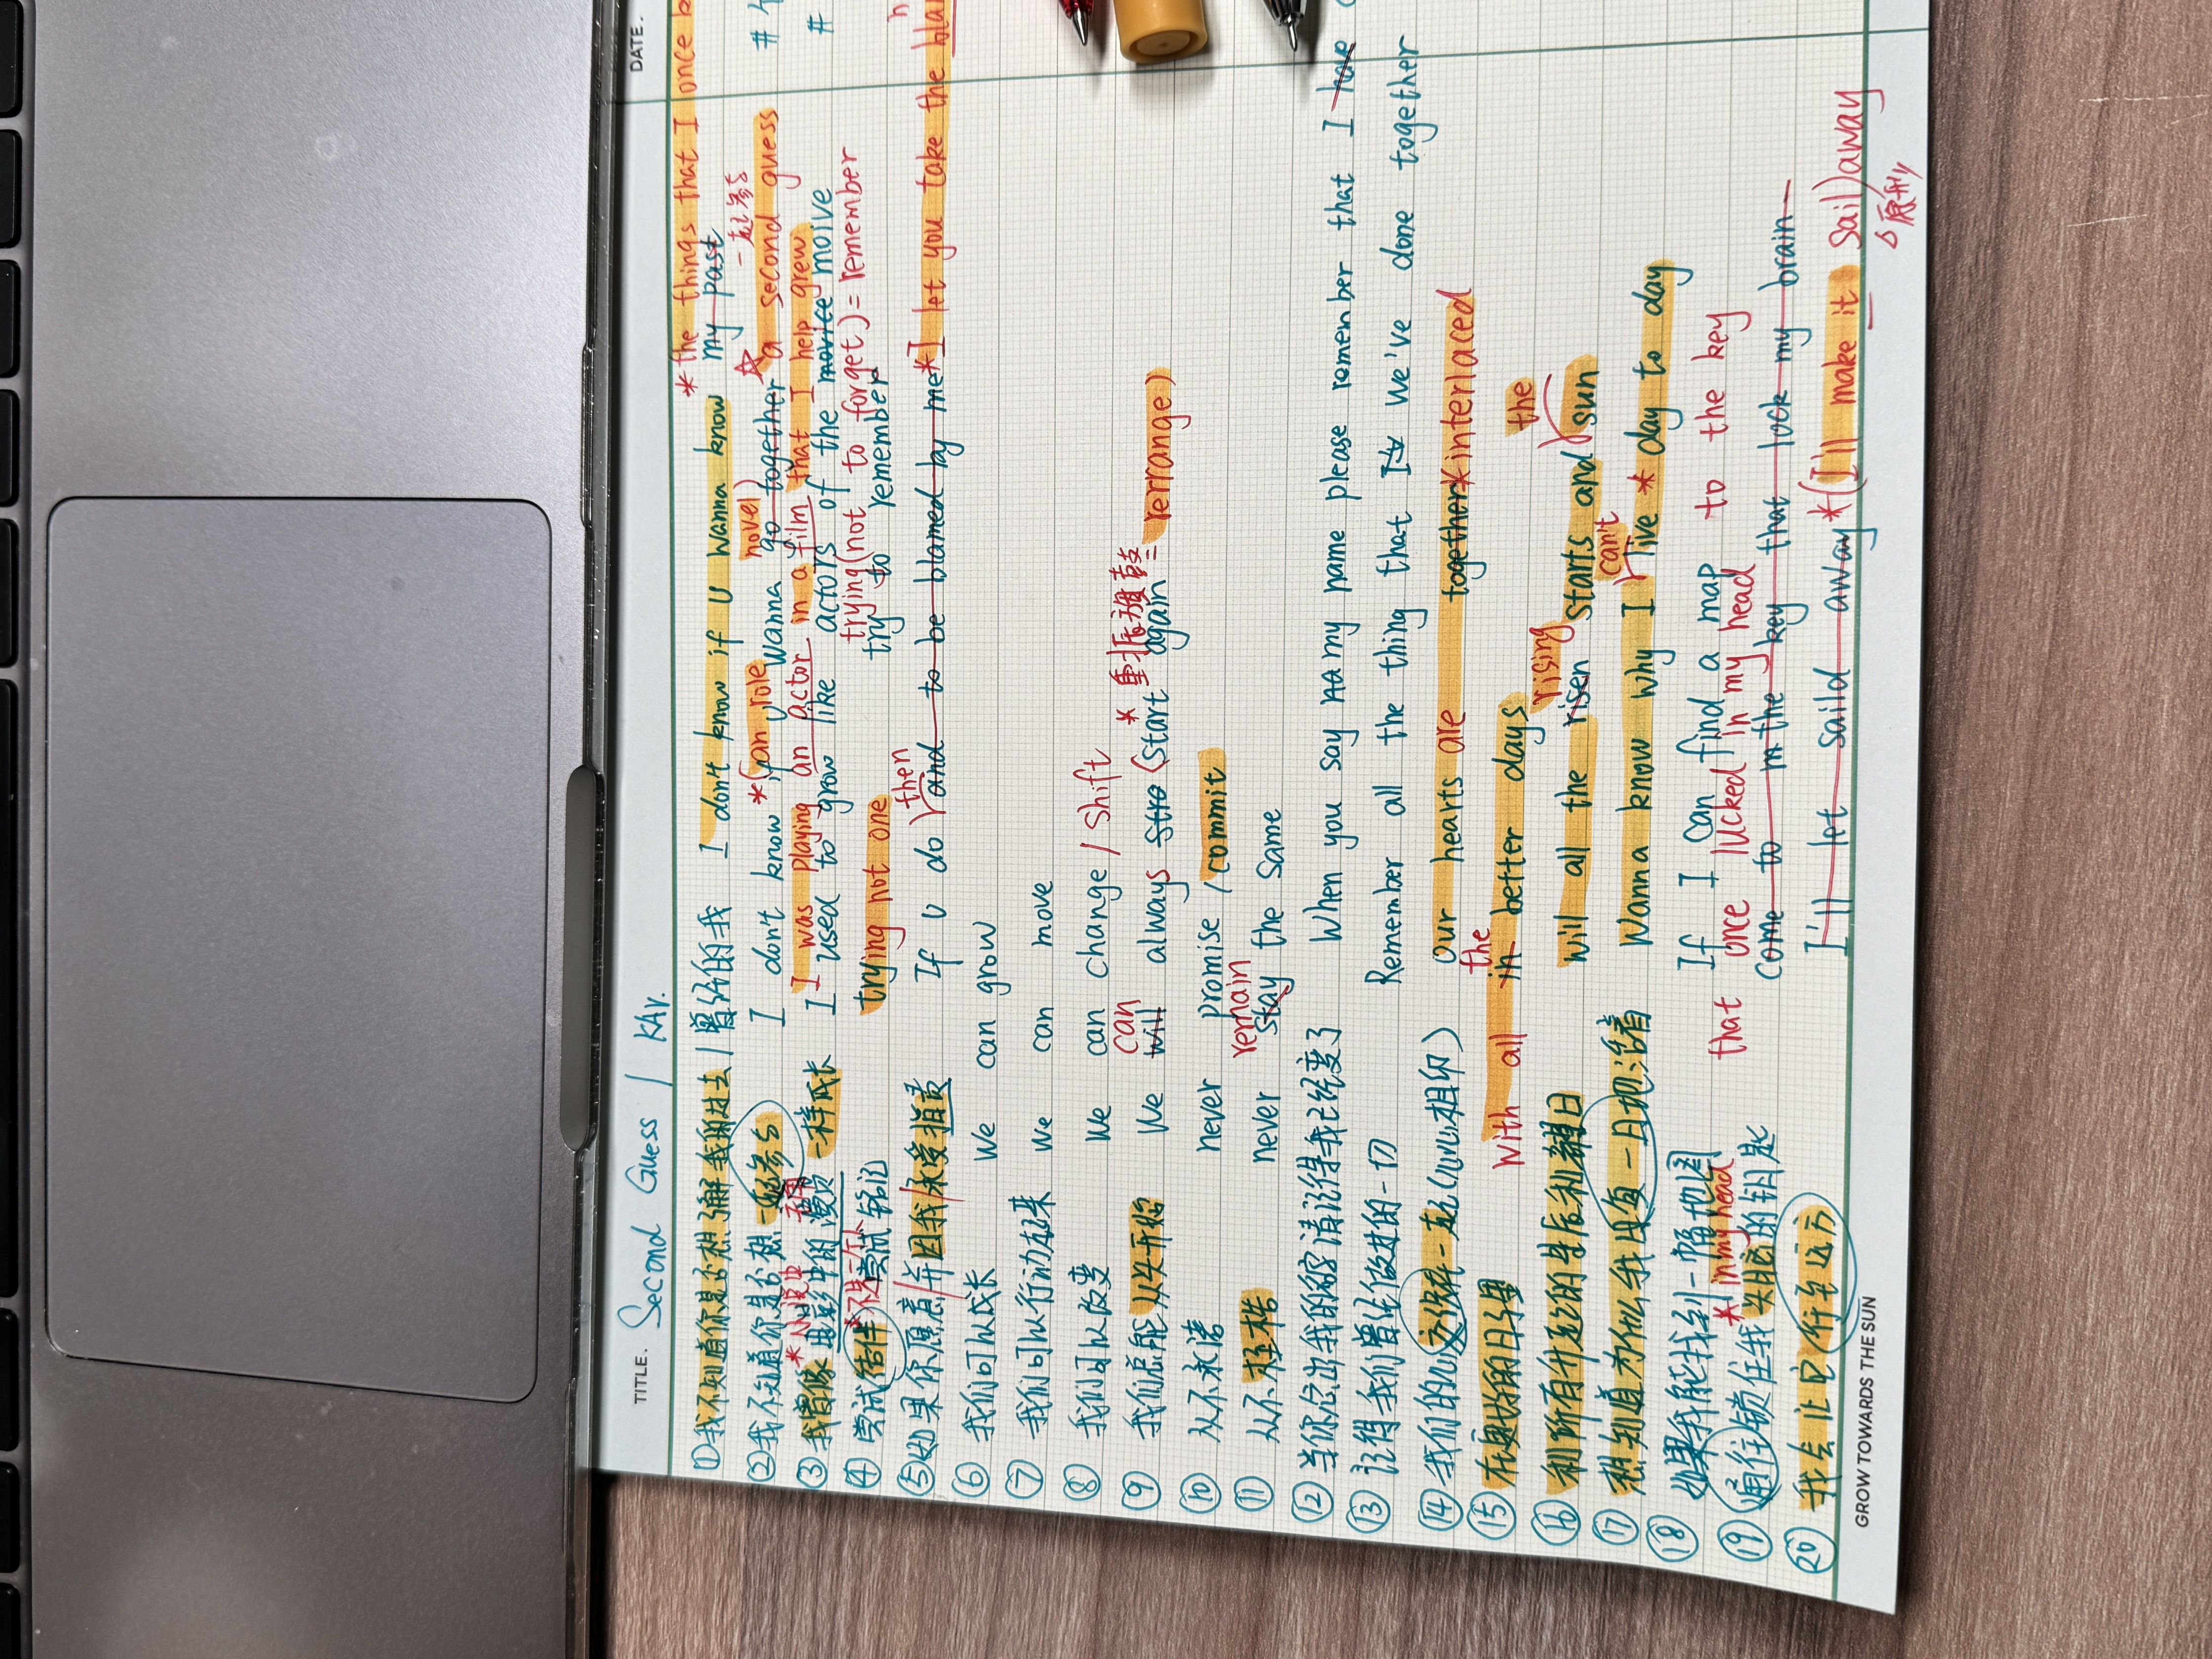 TITLE. Second Guess / KAr.
DATE.
* the things that I once b
①我不知道你是否想了解我的过去/曾经的我 I don't know if U wanna know my past
一起参与
*(an role novel) ☆ a second guess
②我不知道你是否想一起参与 I don't know if U wanna go together
#
* I was playing an actor in a film that I help grew
③我曾像电影中的演员一样成长 I used to grow like actors of the movice moive
#
trying (not to forget) = remember
④尝试铭记 try to remember
trying not one
then
⑤如果你愿意/并因我/承受指责 If U do and to be blamed by me * I let you take the bla
⑥ 我们可以成长 We can grow
⑦ 我们可以行动起来 We can move
⑧ 我们可以改变 We can change / shift
can * 重振旗鼓
⑨ 我们总能从头开始 We will always (start again = rerrange)
⑩ 从不承诺 never promise / commit
remain
⑪ 从不 never stay the same
⑫ 当你念出我的名字请记得我已经变了 When you say my name please remember that I have
⑬ 记得我们曾经做过的一切 Remember all the thing that we've done together
⑭ 我们的心交织在一起(心心相印) Our hearts are together * interlaced
With the
⑮ 在更好的日子里 all in better days
rising the
⑯ 和所有升起的星辰和朝日 will all the risen starts and sun
can't
⑰ 想知道为什么我没有一日地活着 Wanna know why I live * day to day
⑱ 如果我能找到一幅地图 If I can find a map to the key
* in my head
that once lucked in my head
⑲ 通往锁住我头脑的钥匙 Come to the key that lock my brain
⑳ 我会让它行至远方 I'll let saild away * (I'll make it sail) away
△原形
GROW TOWARDS THE SUN